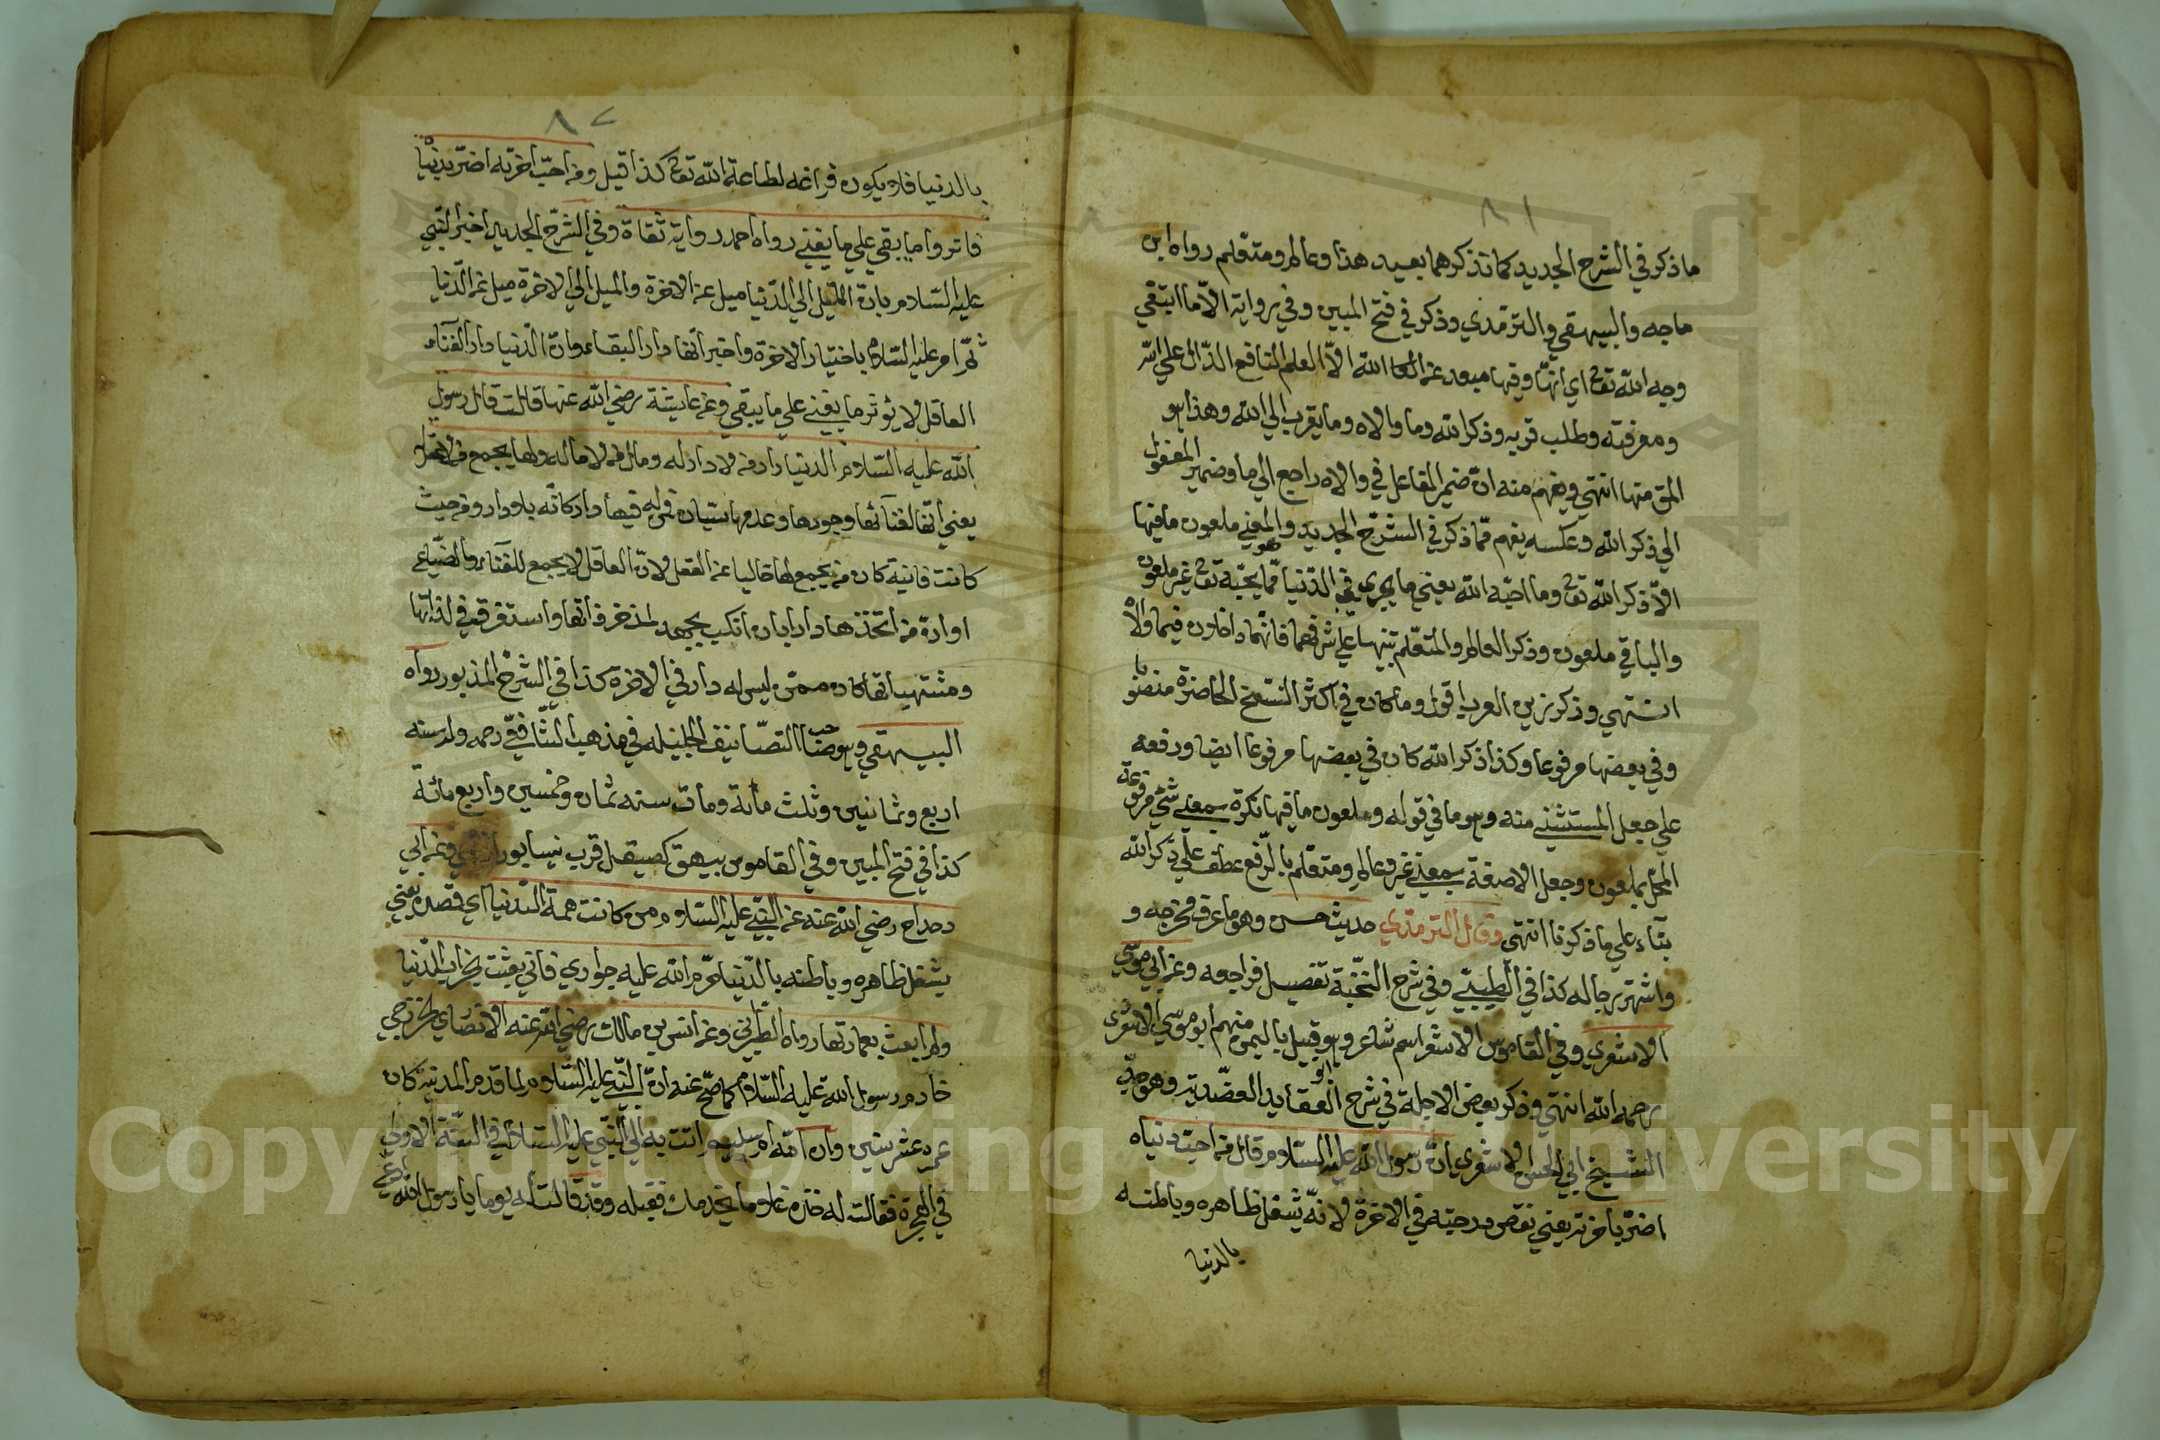 ٨١
ما ذكر في الشرح الجديد كما تذكرهما بعيد هذا وعالم ومتعلم رواه ابن
ماجه والبيهقي والترمذي وذكر في فتح المبين وفي رواية الا ما ابتغي
وجه الله تعا اي انها وفيها مبعد عن الله الا العلم النافع الدال علي الله
ومعرفته وطلب قربه وذكر الله وما والاه وما يقرب الي الله وهذا هو
المق منها انتهي ويفهم منه ان ضمير الفاعل في والاه راجع الي ما وضمير المفعول
الي ذكر الله وعكسه يفهم مما ذكر في الشرح الجديد والمعني ملعون ما فيها
الا ذكر الله تعا وما احبه الله يعني ما يجري في الدنيا مما يحبه تعا غير ملعون
والباقي ملعون وذكر العالم والمتعلم تنبيها علي شرفهما فانهما داخلون فيما والاه
انتهي وذكر زين العرب اقول وما كان في اكثر النسخ الحاضرة منصوبا
وفي بعضها مرفوعا وكذا ذكر الله كان في بعضها مرفوعا ايضا ورفعه
علي جعل المستثني منه وهو ما في قوله وملعون ما فيها نكرة بمعني شئ مرفوعة
المحل بملعون وجعل الا صفة بمعني غير وعالم ومتعلم بالرفع عطف علي ذكر الله
بناء علي ما ذكرنا انتهي وقال الترمذي حديث حسن وهو ما عرف مخرجه و
واشتهر رجاله كذا في الطيبي وفي شرح النخبة تفصيل فراجعه وعن ابي موسي
الاشعري وفي القاموس الاشعر اسم شاعر وهو قبيل باليمن منهم ابو موسي الاشعري
رحمه الله انتهي وذكر بعض الاجلة في شرح العقايد العضدية وهو جد
الشيخ ابي الحسن الاشعري ان رسول الله عليه السلام قال من احب دنياه
اضر باخرته يعني نقص درجته في الاخرة لانه يشغل ظاهره وباطنه
بالدنيا
٨٢
بالدنيا فلا يكون فراغه لطاعة الله تعا كذا قيل ومن احب اخرته اضر بدنياه
فاثروا ما يبقي علي ما يفني رواه احمد رواية ثقاة وفي الشرح الجديد اخبر النبي
عليه السلام بان الميل الي الدنيا ميل عن الاخرة والميل الي الاخرة ميل عن الدنيا
ثم امر عليه السلام باختيار الاخرة واخبر انها دار البقاء وان الدنيا دار الفناء
العاقل لا يؤثر ما يفني علي ما يبقي وعن عايشة رضي الله عنها قالت قال رسول
الله عليه السلام الدنيا دار من لا دار له ومال من لا مال له ولها يجمع من لا عقل له
يعني انها لفنائها وجودها وعدمها سيان فمن له فيها دار كانه بلا دار ومن حيث
كانت فانية كان من يجمع لها خاليا عن العقل لان العاقل لا يجمع للفناء والضياع
او اراد من اتخذها دارا بان انكب بجهد لمزخرفاتها واستغرق في لذاتها
ومشتهياتها كان ممن ليس له دار في الاخرة كذا في الشرح المذبور رواه
البيهقي وهو صاحب التصانيف الجليلة في مذهب الشافعي رحمه ولد سنة
اربع وثمانين وثلث مائة ومات سنه ثمان وخمسين واربع مائة
كذا في فتح المبين وفي القاموس بيهق كصيقل قرب نيسابور انتهي وعن ابي
دحداح رضي الله عنه عن النبي عليه السلام من كانت همة الدنيا اي قصده يعني
يشغل ظاهره وباطنه بالدنيا حرم الله عليه جواري فاني بعثت بخراب الدنيا
ولم ابعث بعمارتها رواه الطبراني وعن انس بن مالك رضي الله عنه الانصاري الخزرجي
خادم رسول الله عليه السلام كما صح عنه ان النبي عليه السلام لما قدم المدينة كان
عمره عشر سنين وان امه ام سليم اتت به الي النبي عليه السلام في السنة الاولي
في الهجرة فقالت له خذه غلاما يخدمك فقبله وقد قالت له يوما يا رسول الله ادع